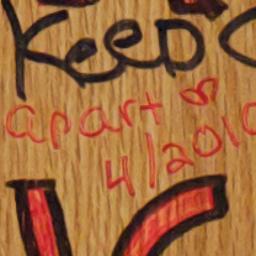 Keep
apart
4/2010